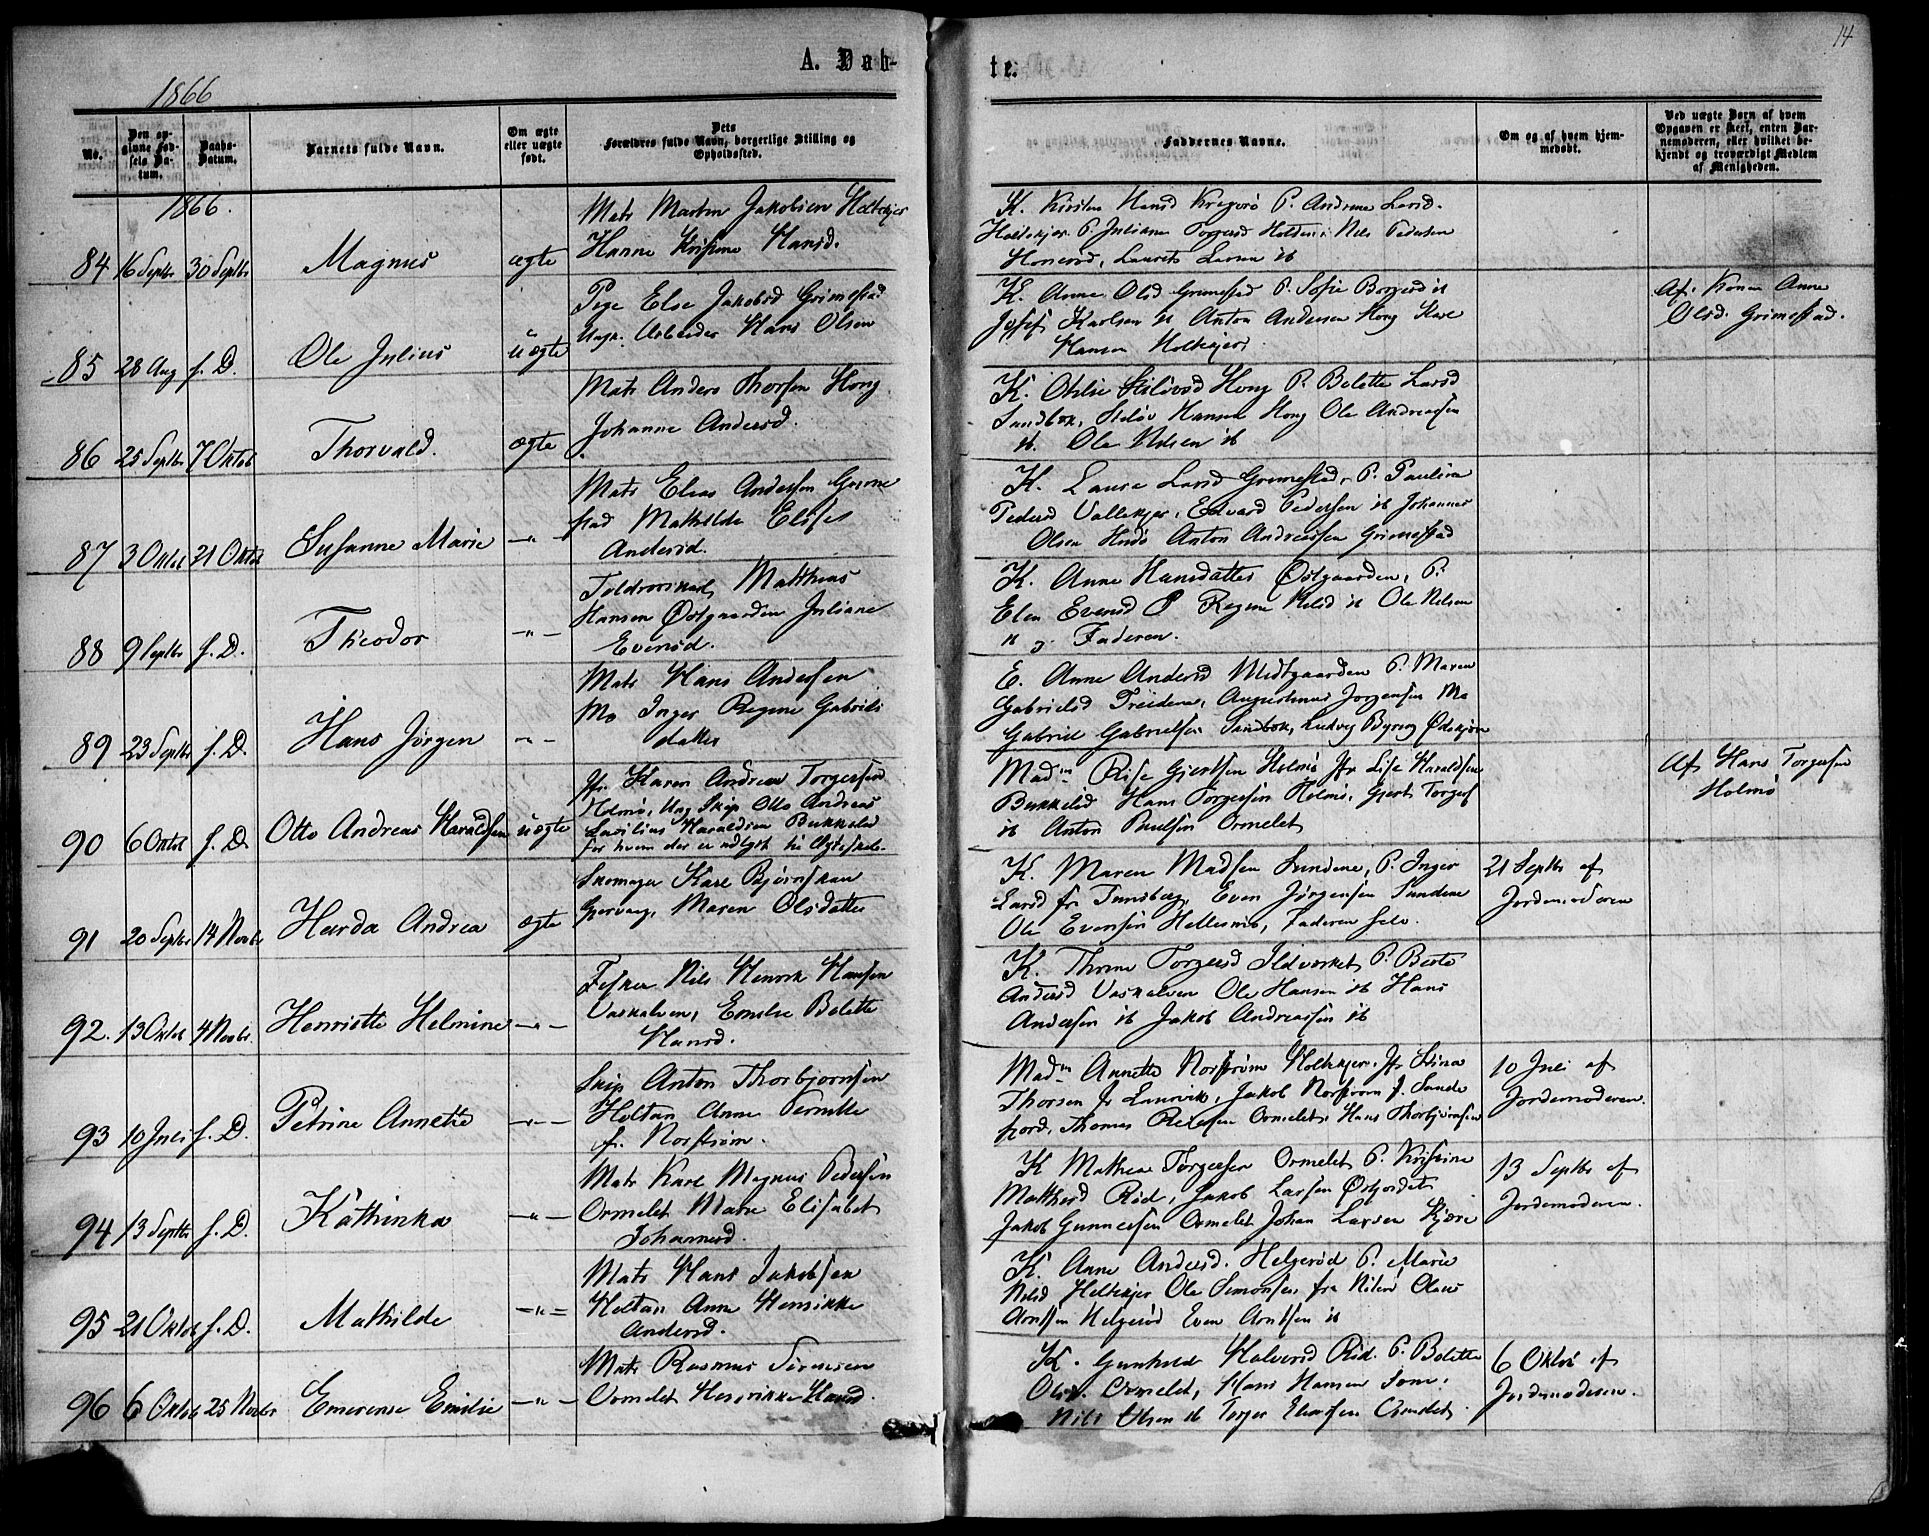 14
A. Døb-
te.
1866
No.
Den opgivne Fødsels Datum.
Daabs-Datum.
Barnets fulde Navn.
Om ægte eller uægte født.
Dets Forældres fulde Navn, borgerlige Stilling og Opholdssted.
Faddernes Navne.
Om og af hvem hjemmedøbt.
Ved uægte Børn af hvem Opgaven er skeet, enten Barnemoderen, eller hvilket bekjendt og troværdigt Medlem af Menigheden.
1866.
84 16 Septbr 30 Septbr Magnus ægte
Matr Martin Jakobsen Holtekjær
Hanne Kristine Hansd.
K. Kirsten Hansd Kragerø P. Andrine Larsd.
Holtekjær P. Juliane Torgersd Holten Nils Pedersen
Laurits Larsen ib
85 28 Aug s. D. Ole Julius uægte
Pige Else Jakobsd Grimestad
Ungk. Arbeider Hans Olsen
K. Anne Olsd Grimestad P. Sofie Borgersd ib
Josef Karlsen ib Anton Andersen Hong Kare
Hansen Holtekjær.
Af. Konen Anne
Olsd. Grimestad.
86 25 Septbr 7 Oktob Thorvald. ægte
Matr Anders Thorsen Hong
Johanne Andersd.
K. Othlie Hong P. Bolette Larsd
Sandbæk, Hansen Hong Ole Andreassen
ib. Ole Nilsen ib
87 3 Oktob 21 Oktob Susanne Marie -"-
Matr Elias Andersen Grime
stad Mathilde Elise
Andersd.
K. Laura Larsd Grimestad, P. Pauline
Pedersd Vallekjær, Edvard Pedersen ib Johannes
Olsen Anton Andreassen Grimestad
88 9 Septbr s. D. Theodor -"-
Toldrorskarl Matthias
Hansen Østgaarden Juliane
Evensd.
K. Anne Hansdatter Østgaarden, P.
Elen Evensd P Regine Nilsd ib Ole Nilsen
ib og Faderen.
89 23 Septbr s. D. Hans Jørgen -"-
Matr Hans Andersen
Mo Inger Regine Gabriels
datter
E. Anne Andersd Midtgaarden P. Maren
Gabrielsd Treidene, Augustinus Jorgensen Mo
Gabriel Gabrielsen Sandbæk, Ludvig Byring Ødekjær
90 6 Oktob s. D. Otto Andreas Haraldsen uægte
Jfr. Karen Andrea Torgersen
Holmø, Ung. Skip. Otto Andreas
Lasilius Haraldsen Bukkelid
for hvem der er udlyst til Ægteskab.
Madm Rise Gjertsen Holmø Jfr. Lise Haraldsen
Bukkelid Hans Torgersen Holmø, Gjert Torgers
ib Anton Paulsen Ormelet
Af Hans Torgersen
Holmø
91 20 Septbr 14 Novbr Harda Andrea ægte
Skomager Karl Bjørnskau
Gjervaag, Maren Olsdatter
K. Maren Madsen Sundene, P. Inger
Larsd fr. Tunsberg, Even Jørgensen Sundene
Ole Evensen Hellesmo, Faderen selv.
21 Septbr af
Jordemoderen
92. 13 Oktob 4 Novbr. Henriette Helmine -"-
Fisker Nils Henrik Hansen
Vaskalven, Emelie Bolette
Hansd.
K. Thrine Torgersd Ildverket P. Berte
Andersd Vaskalven Ole Hansen ib Hans
Andersen ib Jakob Andreassen ib
93 10 Juli s. D. Petrine Annette -"-
Skip Anton Thorbjørnsen
Holtan Anne Pernille
f. Norstrøm.
Madm Annette Norstrøm Holtekjær. Jfr Stina
Thorsen fr Laurvik, Jakob Norstrøm f. Sande
fjord, Thomas Pedersen Ormelet, Hans Thorbjørnsen
10 Juli af
Jordemoderen.
94 13 Septbr s. D. Kathinka -"-
Matr Karl Magnus Pedersen
Ormelet Marie Elisabet
Johannesd.
K Mathea Torgersen Ormelet P. Kristine
Mathisd Rød, Jakob Larsen Østjordet
Jakob Gunnersen Ormelet Johan Larsen Kjære
13 Septbr af
Jordemoderen.
95 21 Oktob s. D. Mathilde -"-
Matr Hans Jakobsen
Holtan Anne Henrikke
Andersd.
K. Anne Andersd. Helgerød P. Marie
Nilsd Holtekjær Ole Simonsen fra Olaus
Arntsen Helgerød Even Arntsen ib
96 6 Oktob 25 Novbr Emerense Emilie -"-
Matr Rasmus Sørensen
Ormelet Henrikke Hansd.
K. Gunhild Halvorsd Rød. P. Bolette
Olsd. Ormelet, Hans Hansen
Nils Olsen ib Torger Eliassen Ormelet.
6 Oktb af
Jordemoderen.